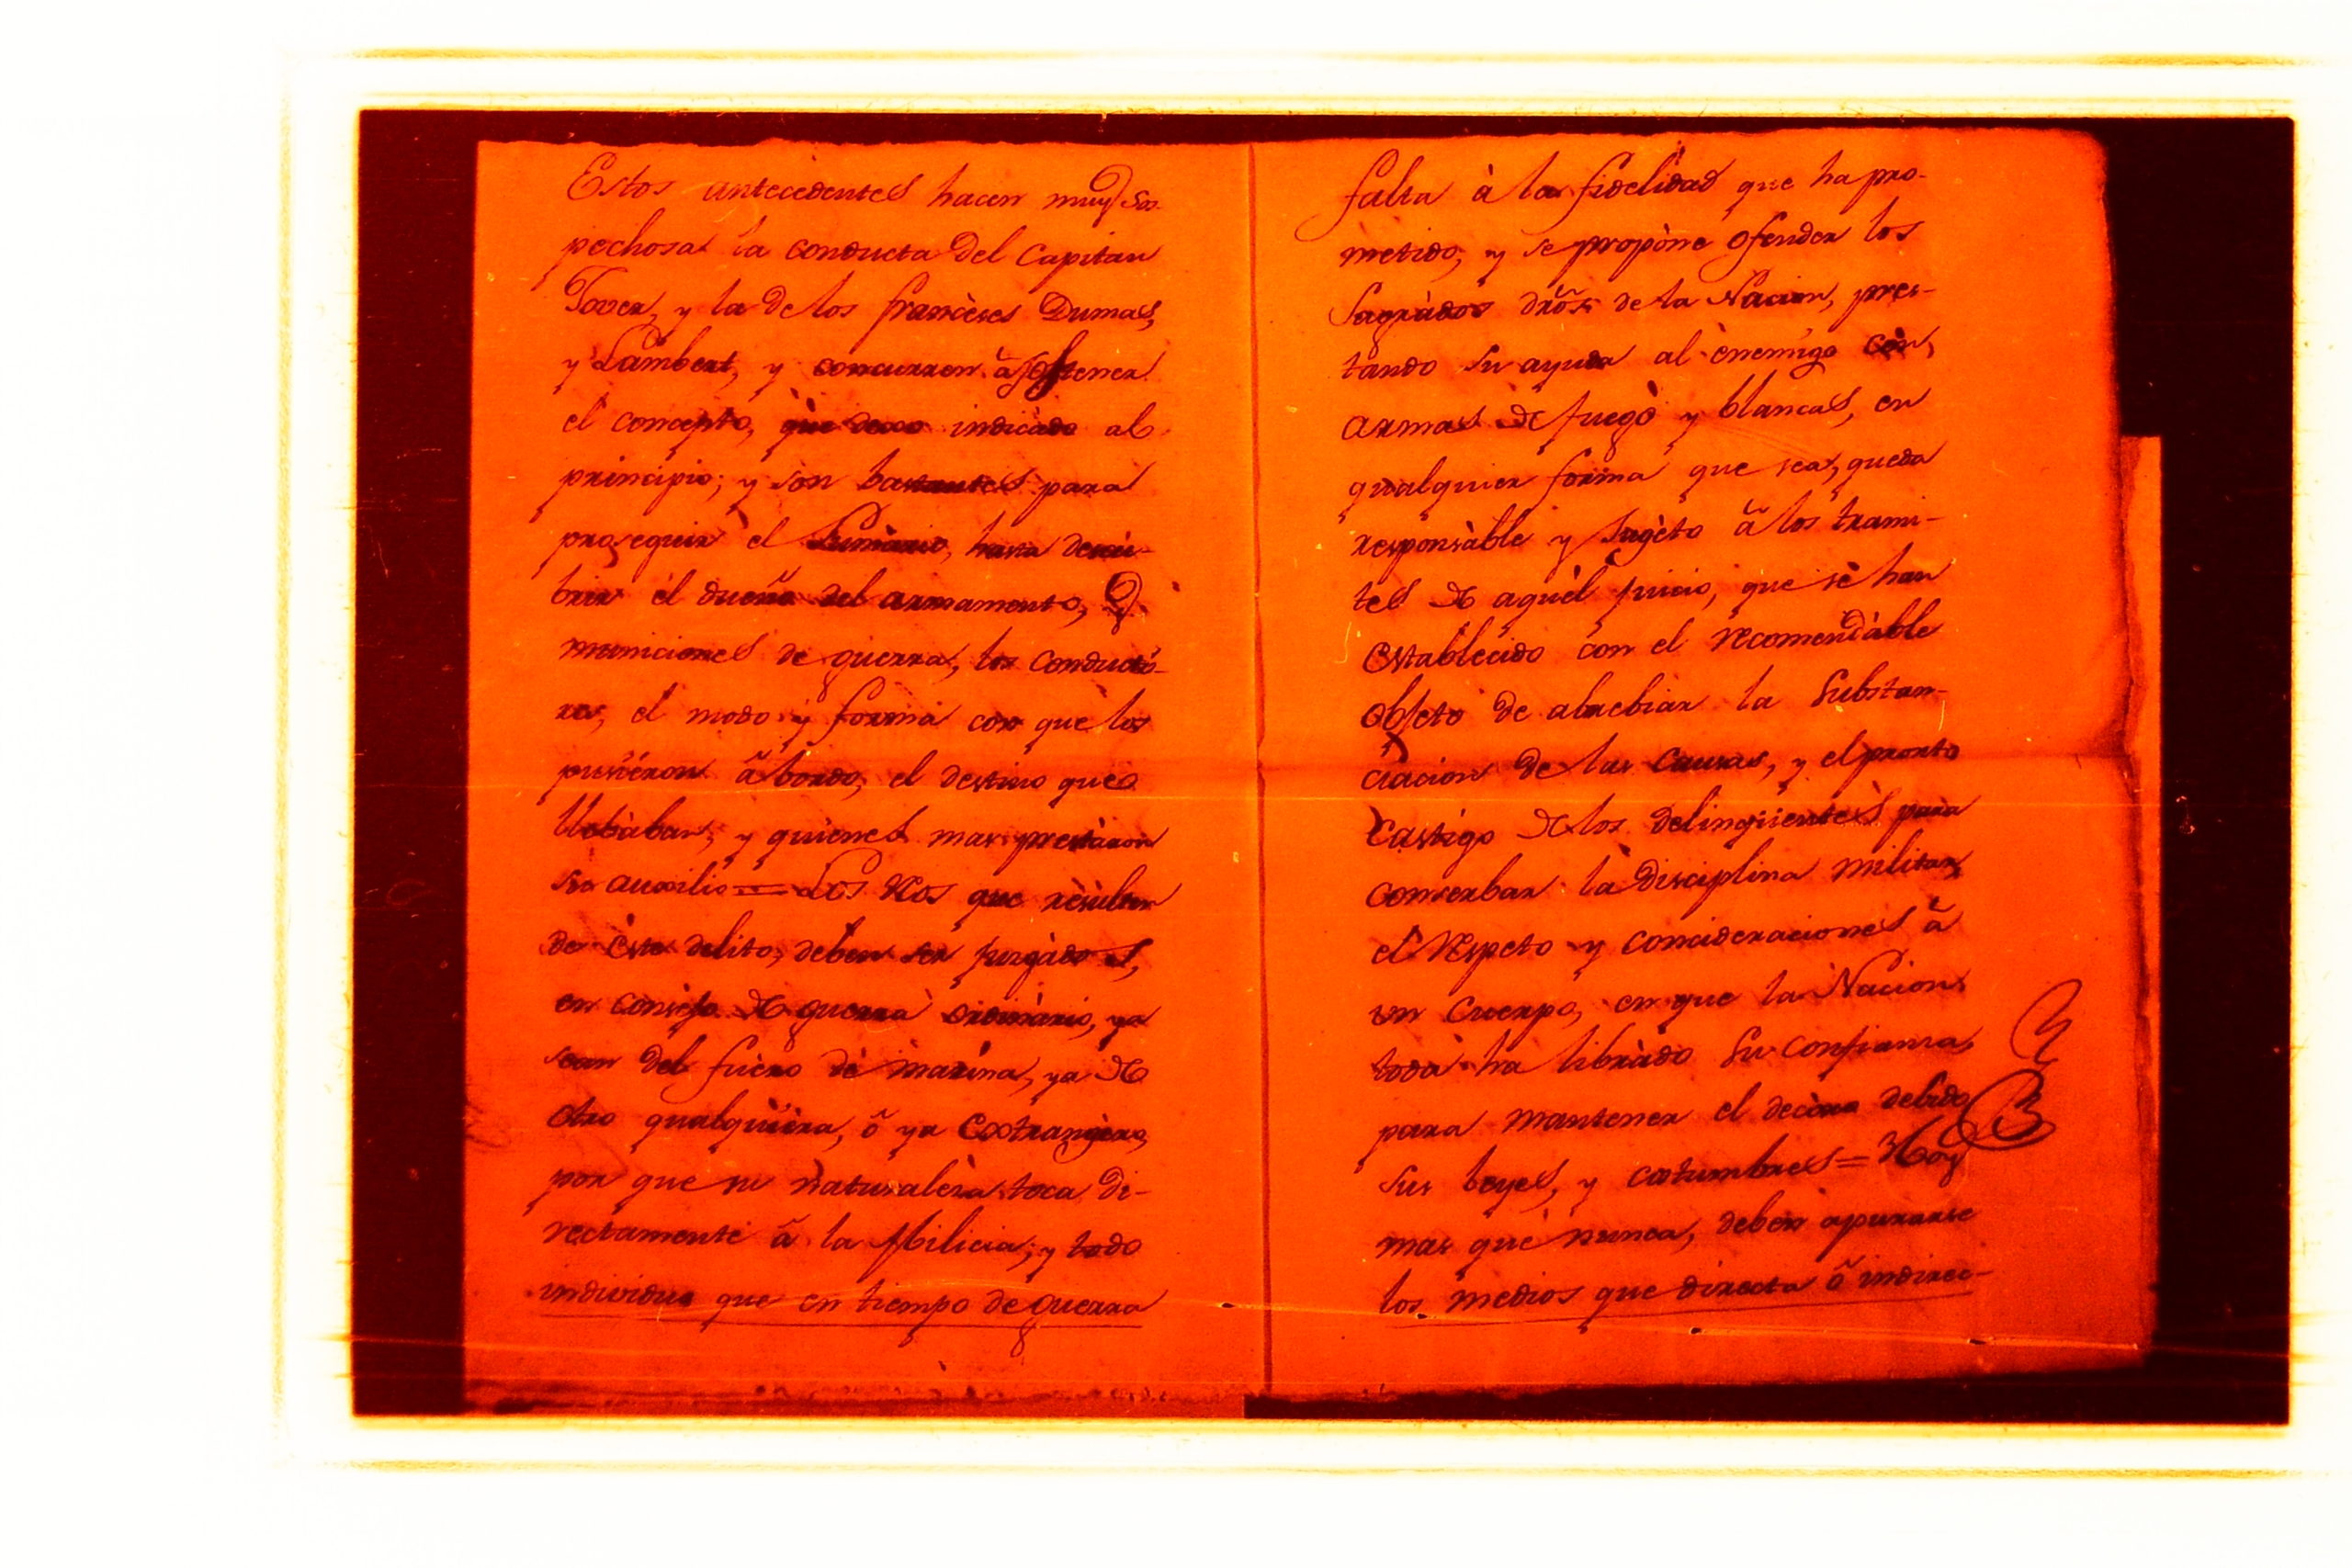 Estos antecedentes hacen muy sos-
pechosa la conducta del Capitan
Tover, y la de los francèses Dumas,
y Lambert, y concurren à sostener
el concepto, què dexo indicàdo al
principio; y son bastantes para
proseguir el Sumàrio, hasta descu-
brir èl dueño del armamento, y
municiones de guerra, los conductò-
res, el modo y forma con que los
pusièron à bordo, el destino que
llebàban, y quiènes mas prestàron
su auxilio = Los Reos que resùlten
de èste delito, deben ser juzgàdos,
en consejo de guerra ordinàrio, ya
sean del fuèro dè marina, ya de
otro qualquièra, ò ya Extrangèro,
por que su naturalèza toca di-
rectamente à la Milicia; y todo
individuo que en tiempo de guerra
falta à la fidelidad que ha pro-
metido, y se propòne ofender los
Sagràdos dr̃os de la Nacion, pres-
tando su ayuda al ènemigo con
armas de fuego y blancas, en
qualquier forma que sea, queda
responsàble y sugèto à los trami-
tes de aquèl juicio, que sè han
establecido con el recomendàble
objeto de abrebiar la Substan-
ciacion de las Causas, y el pronto
Castigo de los delinqüentes para
conserbar la disciplina militar,
el respeto y concideraciones à
un Cuerpo, en que la Nacion
toda ha libràdo su confianza,
para mantener el decòro debido
sus leyes, y costumbres = Hoy
mas què nunca, deben apurarse
los medios que directa ò indirec-